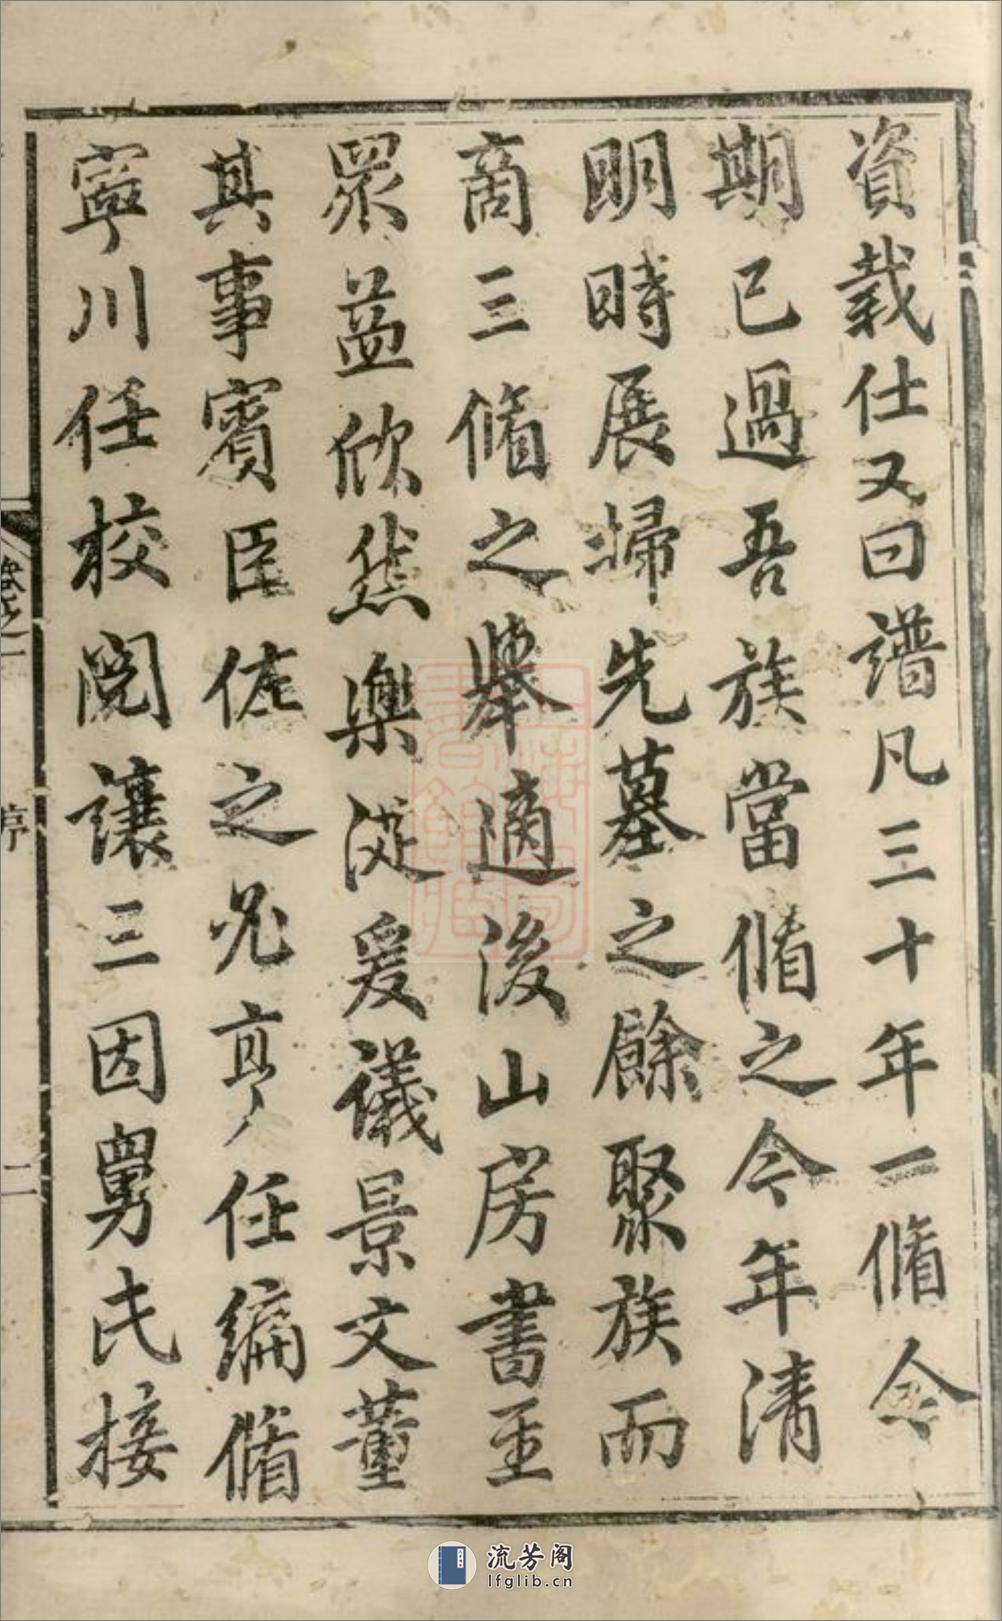 資裁仕又曰譜凡三十年一脩念
期已過吾族當脩之今年清
明時展埽先墓之餘聚族而
商三脩之舉適後山房書至
眾益欣然樂從爰儀景文董
其事賓臣佐之兄亨任編脩
寧川任校閱讓三因舅氏接
卷之一
序
二
流芳阁
lfglib.cn